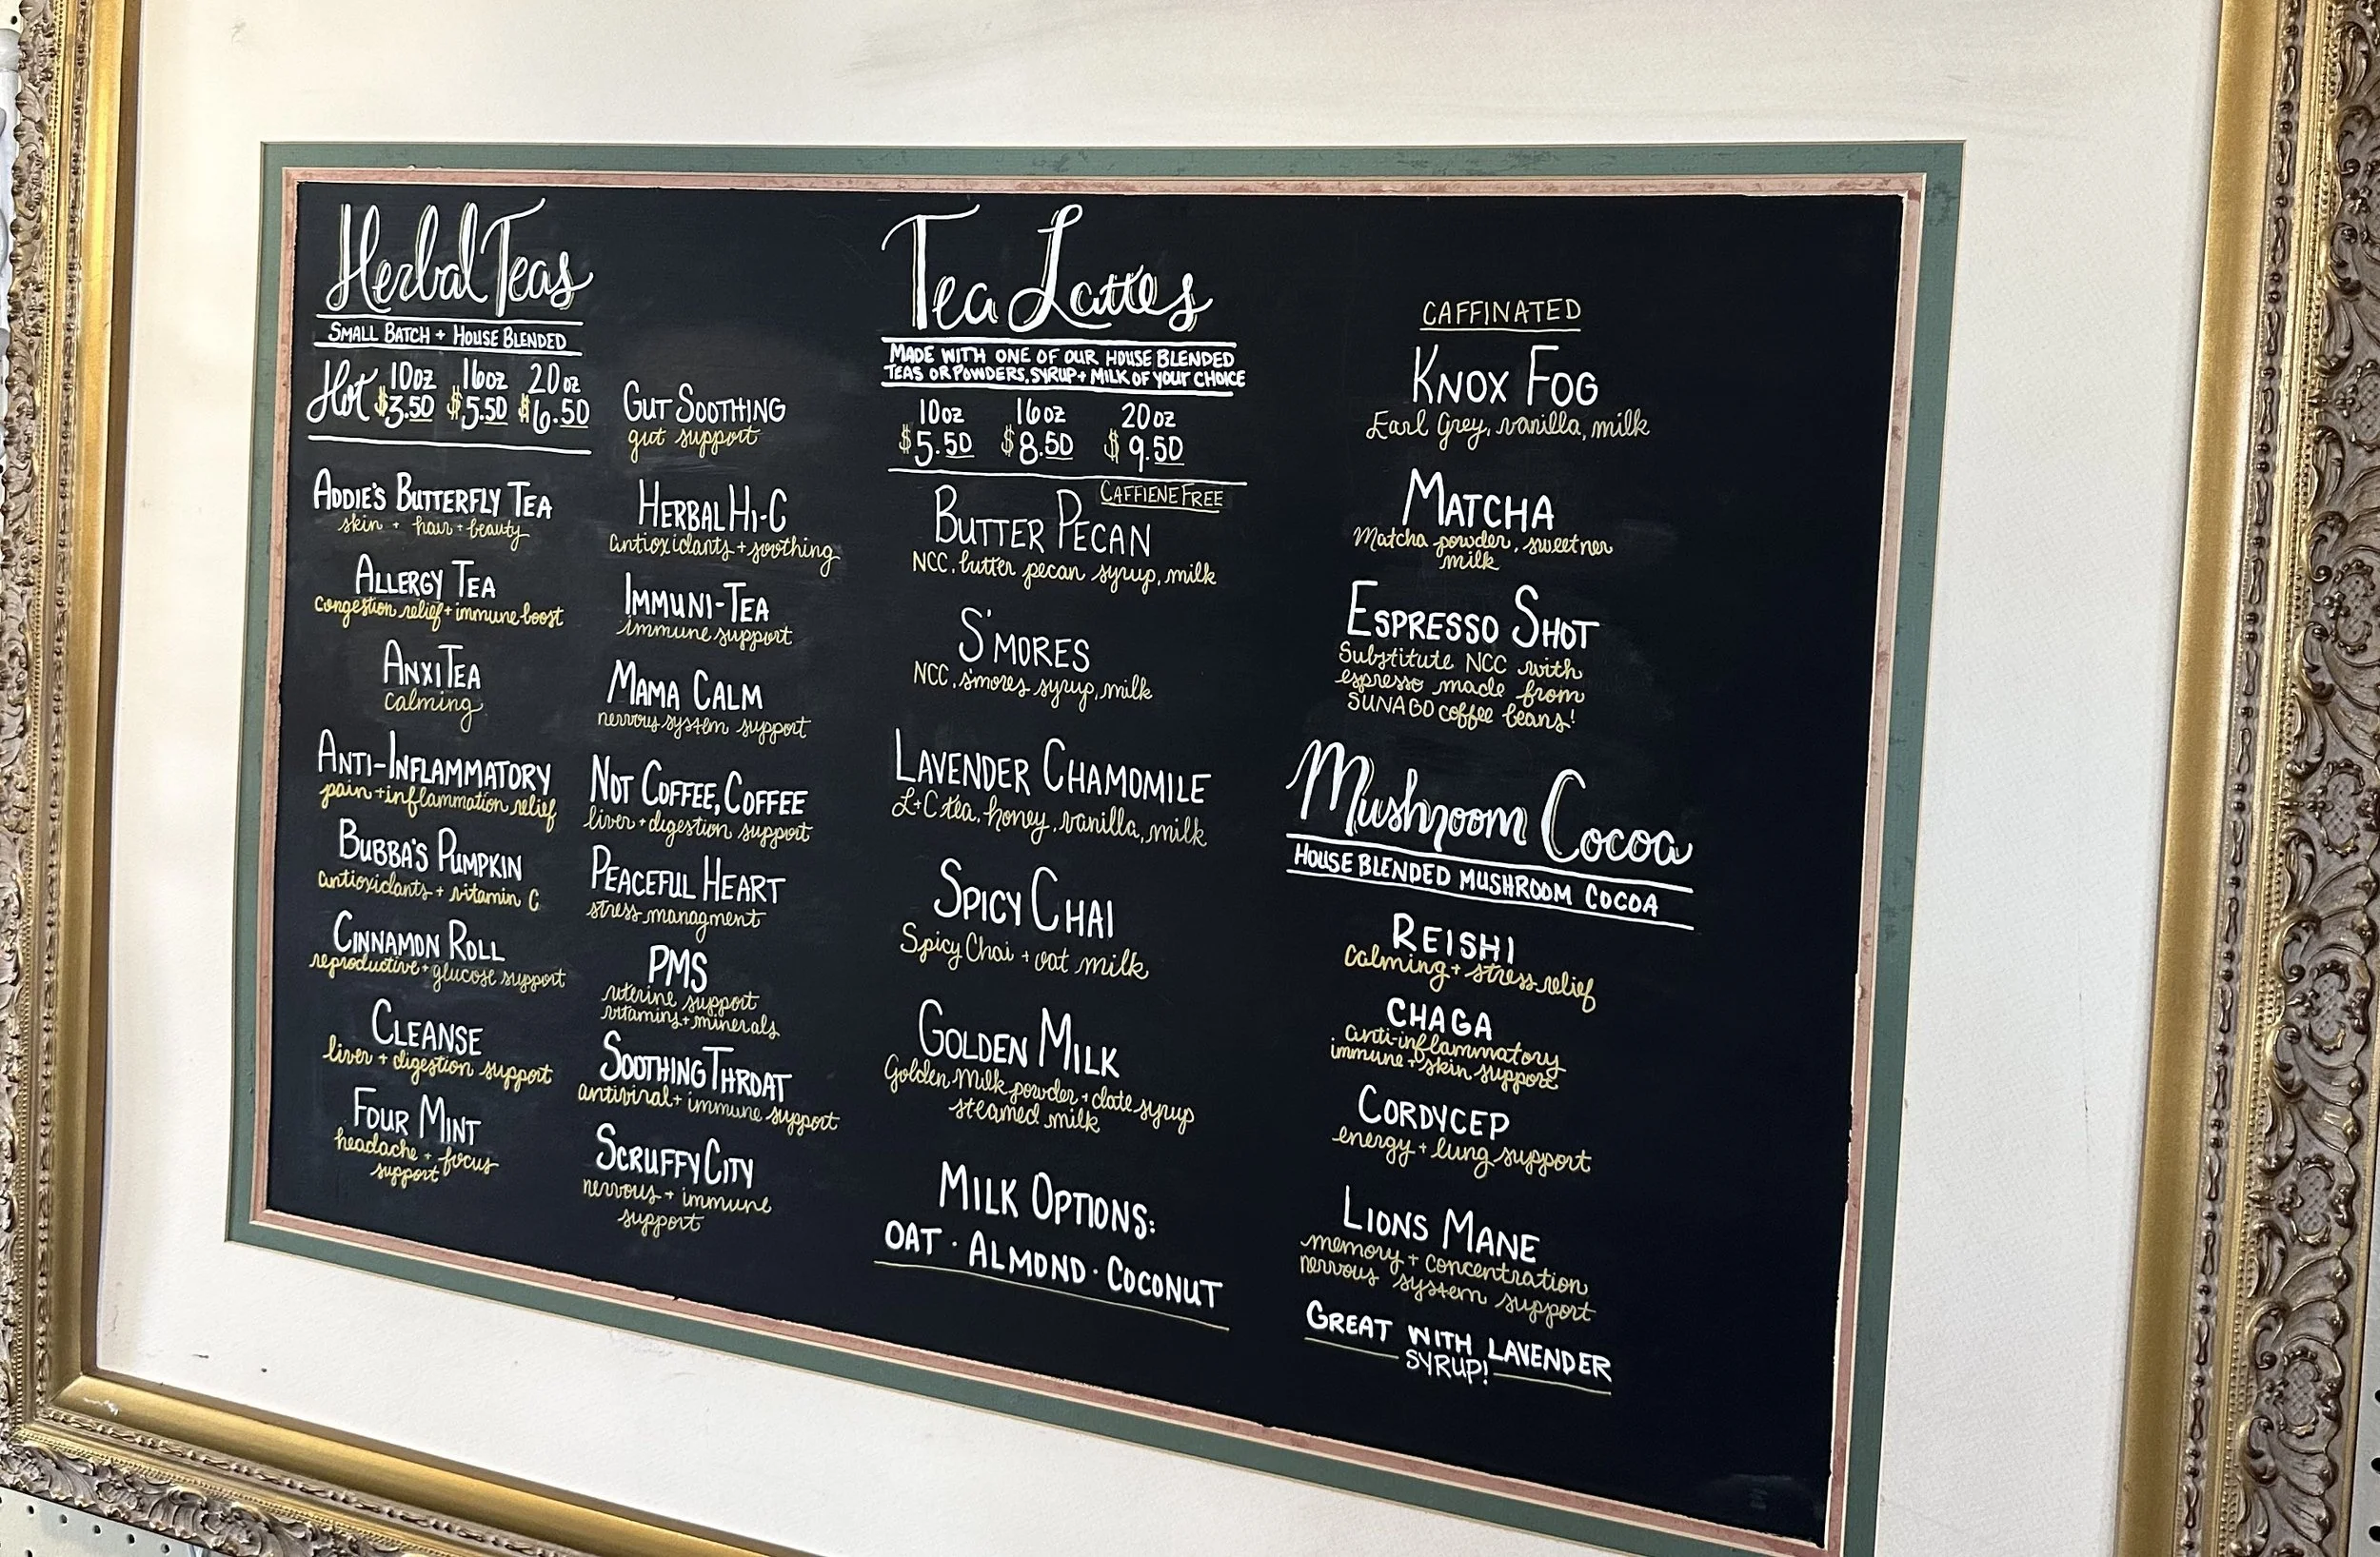 Herbal Teas
SMALL BATCH + HOUSE BLENDED
Hot 10oz 16oz 20oz
$3.50 $5.50 $6.50
ADDIE'S BUTTERFLY TEA
skin + hair + beauty
ALLERGY TEA
congestion relief + immune boost
ANXITEA
calming
ANTI-INFLAMMATORY
pain + inflammation relief
BUBBA'S PUMPKIN
antioxidants + vitamin C
CINNAMON ROLL
reproductive + glucose support
CLEANSE
liver + digestion support
FOUR MINT
headache + focus
support
GUT SOOTHING
gut support
HERBAL HI-C
antioxidants + soothing
IMMUNI-TEA
immune support
MAMA CALM
nervous system support
NOT COFFEE, COFFEE
liver + digestion support
PEACEFUL HEART
stress managment
PMS
uterine support
vitamins + minerals
SOOTHING THROAT
antiviral + immune support
SCRUFFY CITY
nervous + immune
support
Tea Lattes
MADE WITH ONE OF OUR HOUSE BLENDED
TEAS OR POWDERS, SYRUP + MILK OF YOUR CHOICE
10oz 16oz 20oz
$5.50 $8.50 $9.50
CAFFIENE FREE
BUTTER PECAN
NCC, butter pecan syrup, milk
S'MORES
NCC, s'mores syrup, milk
LAVENDER CHAMOMILE
L+C tea, honey, vanilla, milk
SPICY CHAI
Spicy Chai + oat milk
GOLDEN MILK
Golden Milk powder + date syrup
steamed milk
MILK OPTIONS:
OAT · ALMOND · COCONUT
CAFFINATED
KNOX FOG
Earl Grey, vanilla, milk
MATCHA
Matcha powder, sweetner
milk
ESPRESSO SHOT
Substitute NCC with
espresso made from
SUNAGO coffee beans!
Mushroom Cocoa
HOUSE BLENDED MUSHROOM COCOA
REISHI
calming + stress relief
CHAGA
anti-inflammatory
immune + skin support
CORDYCEP
energy + lung support
LIONS MANE
memory + concentration
nervous system support
GREAT WITH LAVENDER
SYRUP!